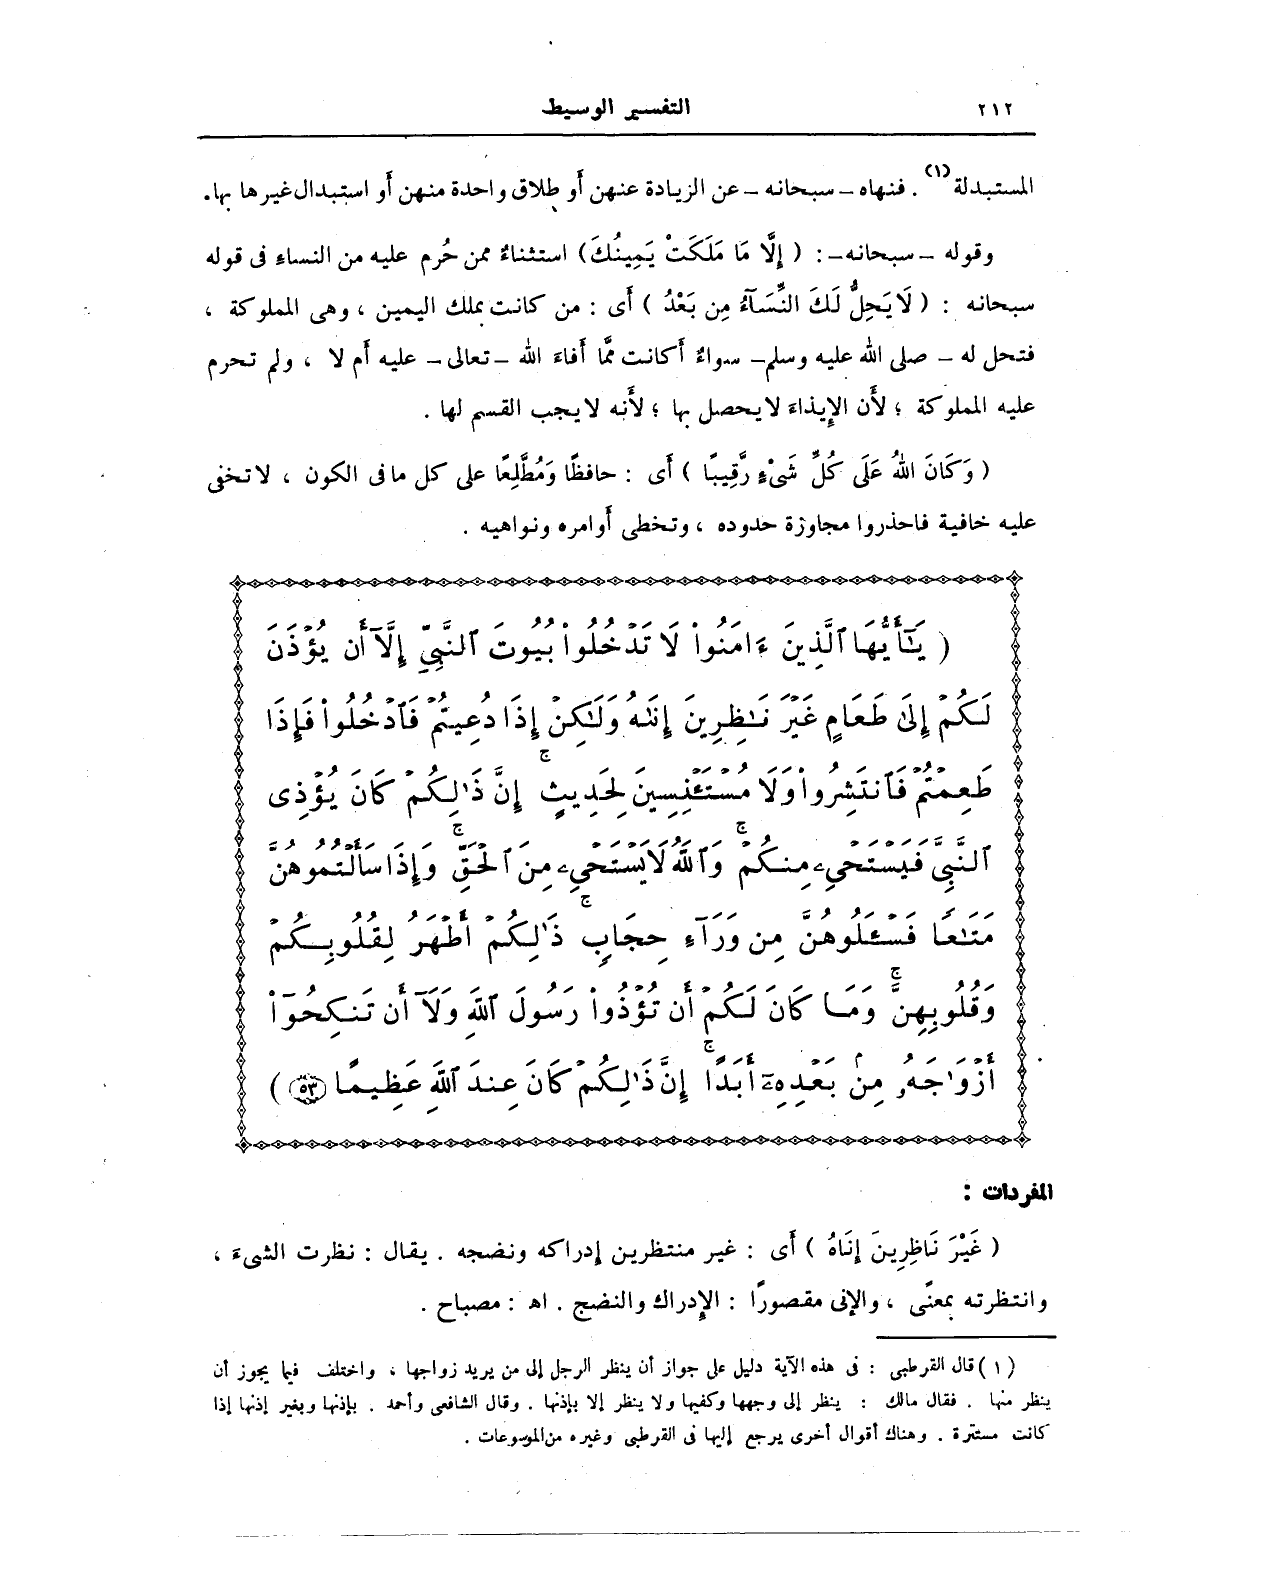 ٢١٢ التفسير الوسيط
المستبدلة (١) . فنهاه – سبحانه – عن الزيادة عنهن أو طلاق واحدة منهن أو استبدال غيرها بها.
وقوله – سبحانه – : ( إِلَّا مَا مَلَكَتْ يَمِينُكَ) استثناءٌ ممن حُرم عليه من النساءِ فى قوله
سبحانه : ( لَا يَحِلُّ لَكَ النِّسَآءُ مِن بَعْدُ ) أَى : من كانت بملك اليمين ، وهى المملوكة ،
فتحل له – صلى الله عليه وسلم – سواءٌ أكانت ممَّا أفاءَ الله – تعالى – عليه أم لا ، ولم تحرم
عليه المملوكة ؛ لأَن الإِيذاءَ لا يحصل بها ؛ لأَنه لا يجب القسم لها .
( وَكَانَ اللهُ عَلَى كُلِّ شَىْءٍ رَّقِيبًا ) أَى : حافظًا وَمُطَّلِعًا على كل ما فى الكون ، لا تخفى
عليه خافية فاحذروا مجاوزة حدوده ، وتخطى أوامره ونواهيه .
( يَـٰٓأَيُّهَا ٱلَّذِينَ ءَامَنُوا۟ لَا تَدْخُلُوا۟ بُيُوتَ ٱلنَّبِىِّ إِلَّآ أَن يُؤْذَنَ
لَكُمْ إِلَىٰ طَعَامٍ غَيْرَ نَـٰظِرِينَ إِنَىٰهُ وَلَـٰكِنْ إِذَا دُعِيتُمْ فَٱدْخُلُوا۟ فَإِذَا
طَعِمْتُمْ فَٱنتَشِرُوا۟ وَلَا مُسْتَـْٔنِسِينَ لِحَدِيثٍ ۚ إِنَّ ذَٰلِكُمْ كَانَ يُؤْذِى
ٱلنَّبِىَّ فَيَسْتَحْىِۦ مِنكُمْ ۖ وَٱللَّهُ لَا يَسْتَحْىِۦ مِنَ ٱلْحَقِّ ۚ وَإِذَا سَأَلْتُمُوهُنَّ
مَتَـٰعًا فَسْـَٔلُوهُنَّ مِن وَرَآءِ حِجَابٍ ۚ ذَٰلِكُمْ أَطْهَرُ لِقُلُوبِكُمْ
وَقُلُوبِهِنَّ ۚ وَمَا كَانَ لَكُمْ أَن تُؤْذُوا۟ رَسُولَ ٱللَّهِ وَلَآ أَن تَنكِحُوٓا۟
أَزْوَٰجَهُۥ مِنۢ بَعْدِهِۦٓ أَبَدًا ۚ إِنَّ ذَٰلِكُمْ كَانَ عِندَ ٱللَّهِ عَظِيمًا (٥٣) )
المفردات :
( غَيْرَ نَاظِرِينَ إِنَاهُ ) أَى : غير منتظرين إدراكه ونضجه . يقال : نظرت الشىءَ ،
وانتظرته بمعنًى ، والإنى مقصورًا : الإِدراك والنضج . اه : مصباح .
(١) قال القرطبى : فى هذه الآية دليل على جواز أن ينظر الرجل إلى من يريد زواجها ، واختلف فيما يجوز أن
ينظر منها . فقال مالك : ينظر إلى وجهها وكفيها ولا ينظر إلا بإذنها . وقال الشافعى وأحمد . بإذنها وبغير إذنها إذا
كانت مستترة . وهناك أقوال أخرى يرجع إليها فى القرطبى وغيره من الموسوعات .